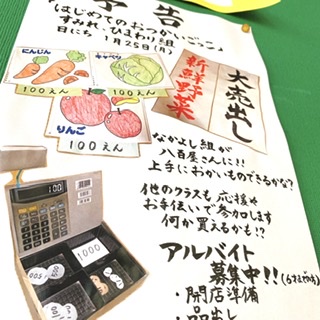 予告
「はじめてのおつかいごっこ」
すみれ、ひまわり組
日にち 1月25日(月)
にんじん
100えん
キャベツ
100えん
りんご
100えん
大売出し
新鮮野菜
なかよし組が
八百屋さんに!!
上手におかいものできるかな?
他のクラスも応援や
お手伝いで参加します
何か買えるかも!?
100
1000
アルバイト
募集中!!
・開店準備
・品出し